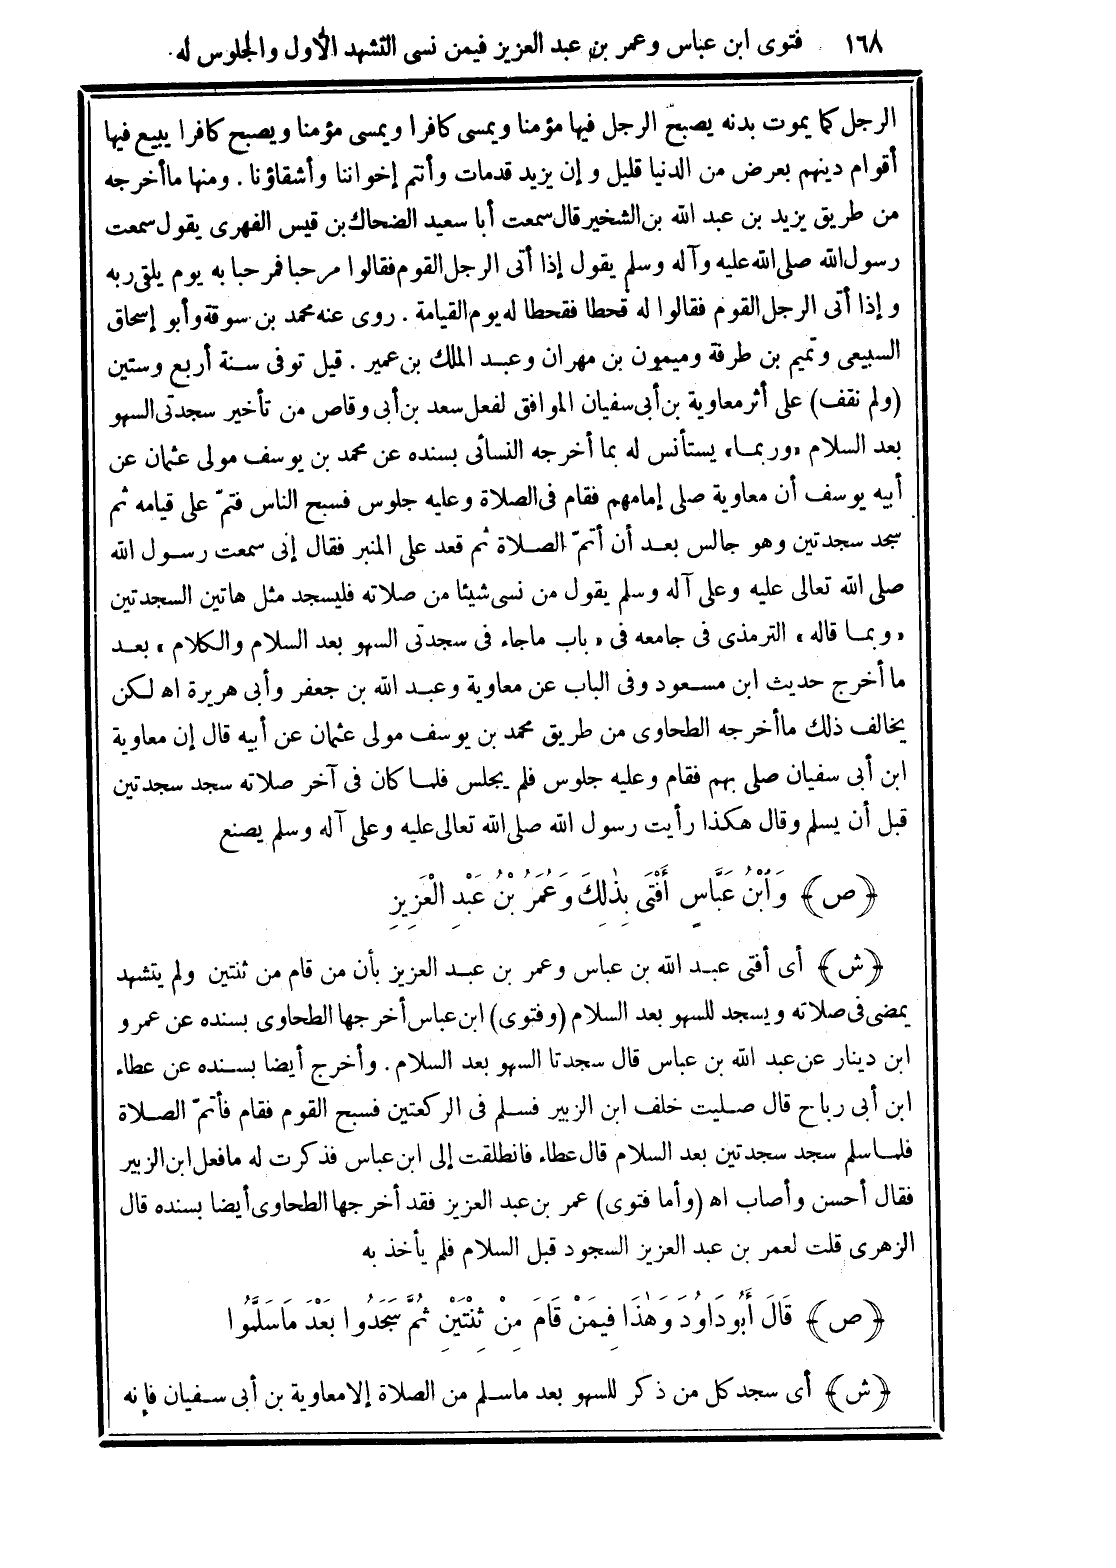 ١٦٨ فتوى ابن عباس وعمر بن عبد العزيز فيمن نسى التشهد الأول والجلوس له
الرجل كما يموت بدنه يصبح الرجل فيها مؤمنا ويمسى كافرا ويمسى مؤمنا ويصبح كافرا يبيع فيها
أقوام دينهم بعرض من الدنيا قليل وإن يزيد قدمات وأنتم إخواننا وأشقاؤنا . ومنها ماأخرجه
من طريق يزيد بن عبد الله بن الشخير قال سمعت أبا سعيد الضحاك بن قيس الفهرى يقول سمعت
رسول الله صلى الله عليه وآله وسلم يقول إذا أتى الرجل القوم فقالوا مرحبا فمرحبا به يوم يلقى ربه
وإذا أتى الرجل القوم فقالوا له قحطا فقحطا له يوم القيامة . روى عنه محمد بن سوقة وأبو إسحاق
السبيعى وتميم بن طرفة وميمون بن مهران وعبد الملك بن عمير . قيل توفى سنة أربع وستين
(ولم نقف) على أثر معاوية بن أبى سفيان الموافق لفعل سعد بن أبى وقاص من تأخير سجدتى السهو
بعد السلام «وربما» يستأنس له بما أخرجه النسائى بسنده عن محمد بن يوسف مولى عثمان عن
أبيه يوسف أن معاوية صلى إمامهم فقام فى الصلاة وعليه جلوس فسبح الناس فتمّ على قيامه ثم
سجد سجدتين وهو جالس بعد أن أتمّ الصلاة ثم قعد على المنبر فقال إنى سمعت رسول الله
صلى الله تعالى عليه وعلى آله وسلم يقول من نسى شيئا من صلاته فليسجد مثل هاتين السجدتين
«وبما قاله» الترمذى فى جامعه فى «باب ماجاء فى سجدتى السهو بعد السلام والكلام» بعد
ما أخرج حديث ابن مسعود وفى الباب عن معاوية وعبد الله بن جعفر وأبى هريرة اه لكن
يخالف ذلك ماأخرجه الطحاوى من طريق محمد بن يوسف مولى عثمان عن أبيه قال إن معاوية
ابن أبى سفيان صلى بهم فقام وعليه جلوس فلم يجلس فلما كان فى آخر صلاته سجد سجدتين
قبل أن يسلم وقال هكذا رأيت رسول الله صلى الله تعالى عليه وعلى آله وسلم يصنع
﴿ص﴾ وَٱبْنُ عَبَّاسٍ أَفْتَى بِذٰلِكَ وَعُمَرُ بْنُ عَبْدِ الْعَزِيزِ
﴿ش﴾ أى أفتى عبد الله بن عباس وعمر بن عبد العزيز بأن من قام من ثنتين ولم يتشهد
يمضى فى صلاته ويسجد للسهو بعد السلام (وفتوى) ابن عباس أخرجها الطحاوى بسنده عن عمرو
ابن دينار عن عبد الله بن عباس قال سجدتا السهو بعد السلام . وأخرج أيضا بسنده عن عطاء
ابن أبى رباح قال صليت خلف ابن الزبير فسلم فى الركعتين فسبح القوم فقام فأتمّ الصلاة
فلما سلم سجد سجدتين بعد السلام قال عطاء فانطلقت إلى ابن عباس فذكرت له مافعل ابن الزبير
فقال أحسن وأصاب اه (وأما فتوى) عمر بن عبد العزيز فقد أخرجها الطحاوى أيضا بسنده قال
الزهرى قلت لعمر بن عبد العزيز السجود قبل السلام فلم يأخذ به
﴿ص﴾ قَالَ أَبُو دَاوُدَ وَهٰذَا فِيمَنْ قَامَ مِنْ ثِنْتَيْنِ ثُمَّ سَجَدُوا بَعْدَ مَاسَلَّمُوا
﴿ش﴾ أى سجد كل من ذكر للسهو بعد ماسلم من الصلاة إلا معاوية بن أبى سفيان فإنه